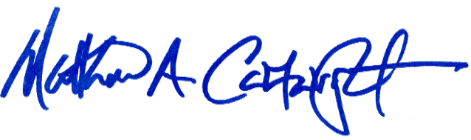 Matthew A. Cartwright